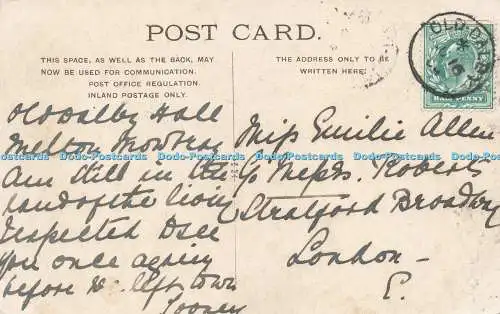 POST CARD.
THIS SPACE, AS WELL AS THE BACK, MAY
NOW BE USED FOR COMMUNICATION.
POST OFFICE REGULATION.
INLAND POSTAGE ONLY.
THE ADDRESS ONLY TO BE
WRITTEN HERE.
OLD DALBY
15
HALF PENNY
Old Dalby Hall
Melton Mowbray
Am still in the
land of the living
Expected
you once again
before left town
Miss Emilie Allen
c/o Messrs. Roberts
Stratford Broadway
London
E.
Dodo-Postcards Dodo-Postcards Dodo-Postcards Dodo-Postcards Dodo-Postcards